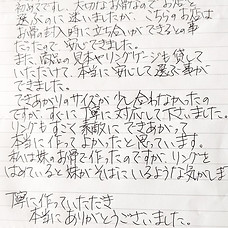 初めてですし、大切なお骨なのでお店を
選ぶのに迷いましたが、こちらのお店は
お骨の封入時に立ち合いができるとの事
だったので、安心できました。
また、商品の見本やリングゲージも貸して
いただけて、本当に安心して選ぶ事が
できました。
できあがりのサイズが少し合わなかったの
ですが、すぐに丁寧に対応して下さいました。
リングもすごく素敵にできあがって
本当に作ってよかったと思っています。
私は妹のお骨で作ったのですが、リングを
はめていると妹がそばにいるような気がしま
丁寧に作っていただき
本当にありがとうございました。